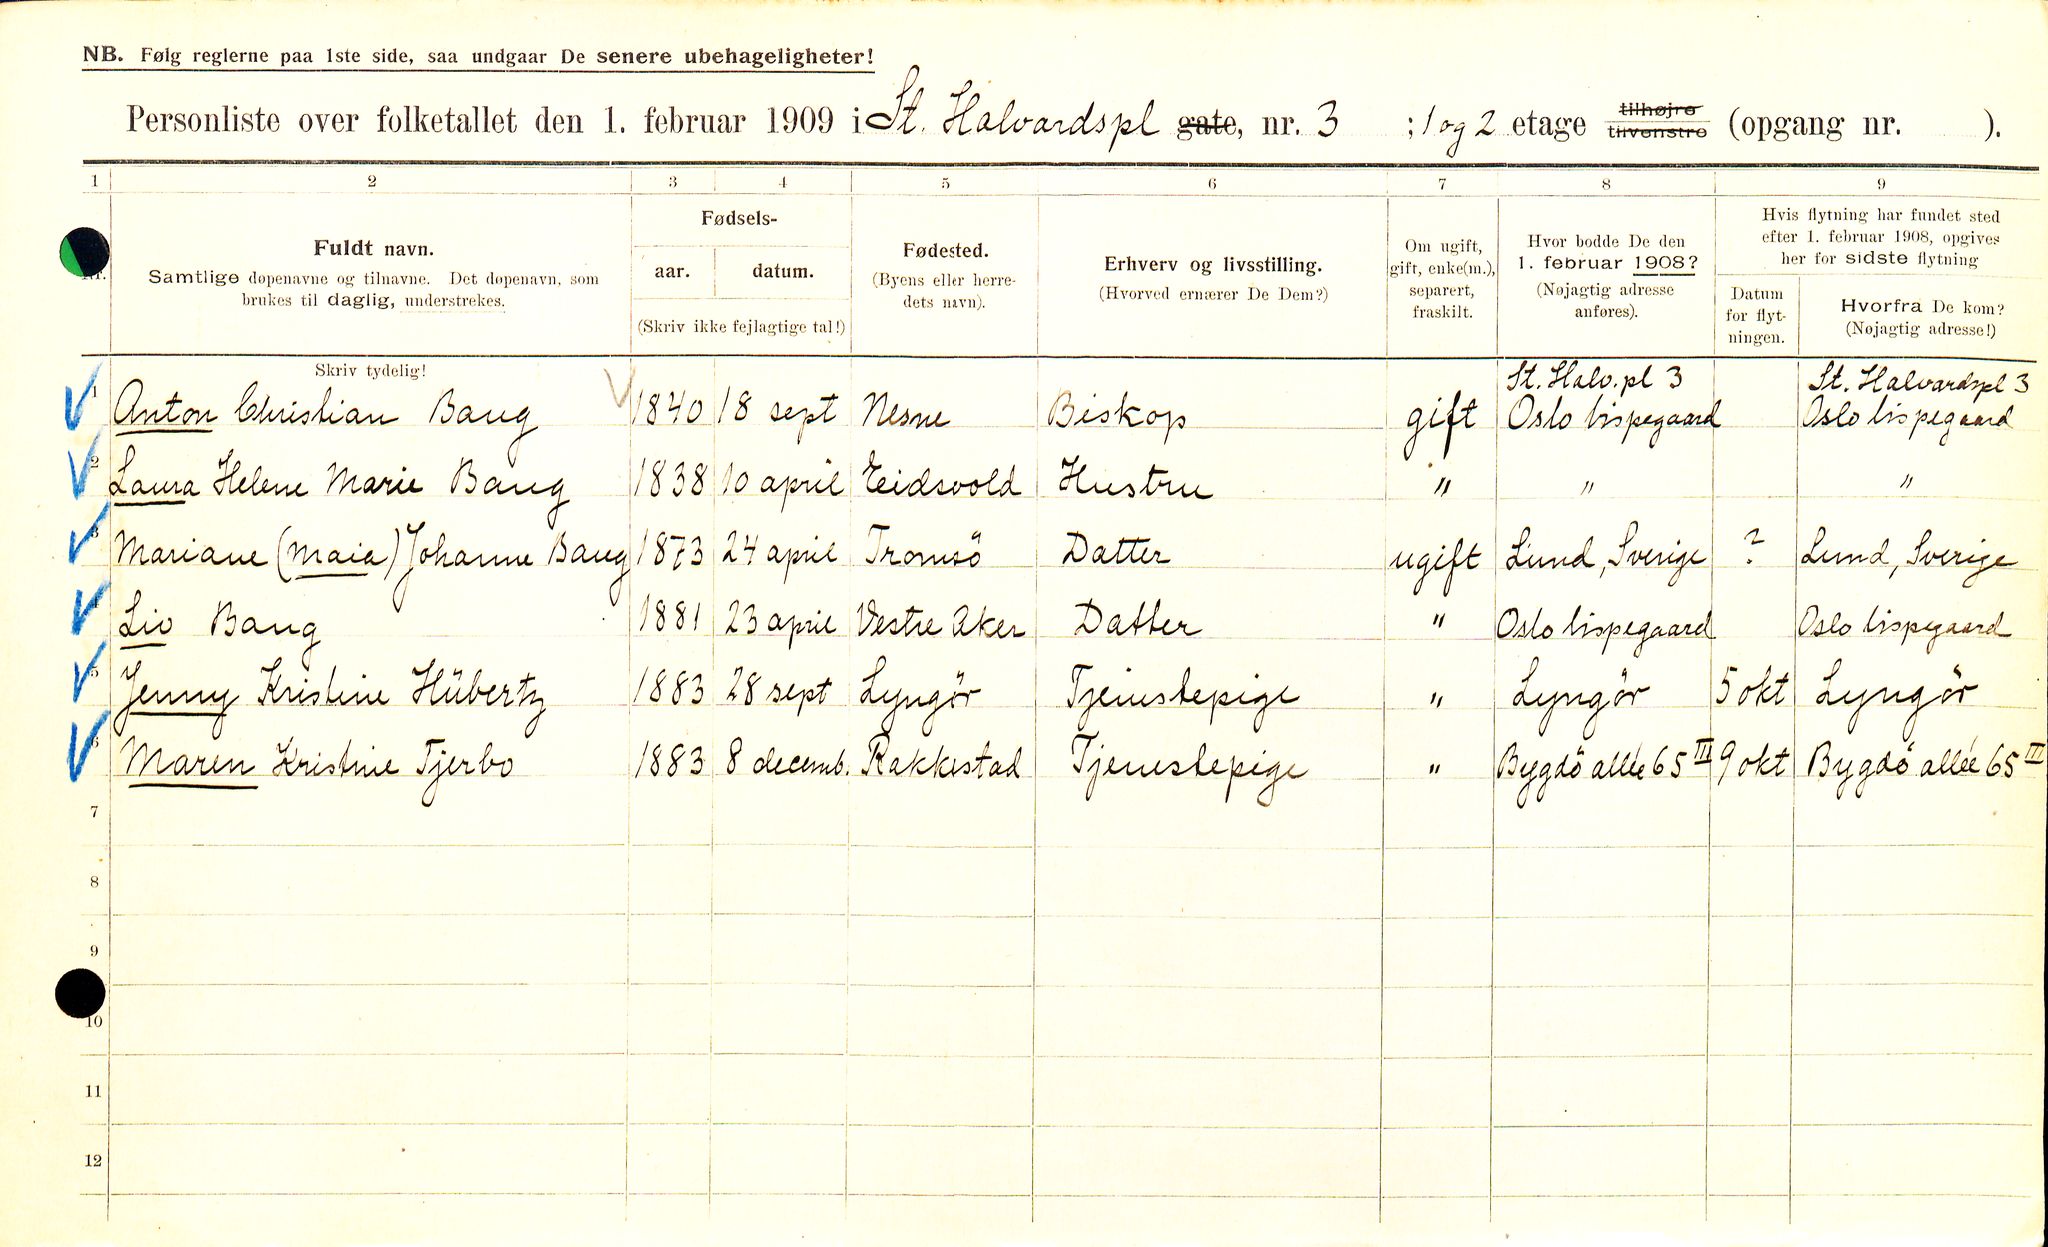 NB. Følg reglerne paa 1ste side, saa undgaar De senere ubehageligheter!
Personliste over folketallet den 1. februar 1909 i St. Halvardspl gate, nr. 3 ; 1 og 2 etage tilhøjre tilvenstre (opgang nr. ).
1 2 3 4 5 6 7 8 9
Nr.
Fuldt navn.
Samtlige døpenavne og tilnavne. Det døpenavn, som
brukes til daglig, understrekes.
Fødsels-
aar. datum.
(Skriv ikke fejlagtige tal!)
Fødested.
(Byens eller herre-
dets navn).
Erhverv og livsstilling.
(Hvorved ernærer De Dem?)
Om ugift,
gift, enke(m.),
separert,
fraskilt.
Hvor bodde De den
1. februar 1908?
(Nøjagtig adresse
anføres).
Hvis flytning har fundet sted
efter 1. februar 1908, opgives
her for sidste flytning
Datum
for flyt-
ningen.
Hvorfra De kom?
(Nøjagtig adresse!)
Skriv tydelig!
St. Halv. pl 3 St. Halvardspl 3
1 Anton Christian Bang 1840 18 sept Nesne Biskop gift Oslo bispegaard Oslo bispegaard
2 Laura Helene Marie Bang 1838 10 april Eidsvold Hustru " " "
3 Mariane (Maia) Johanne Bang 1873 24 april Tromsö Datter ugift Lund, Sverige ? Lund, Sverige
4 Liv Bang 1881 23 april Vestre Aker Datter " Oslo bispegaard Oslo bispegaard
5 Jenny Kristine Hübertz 1883 28 sept Lyngör Tjenstepige " Lyngör 5 okt Lyngör
6 Maren Kristine Tjerbo 1883 8 decemb. Rakkestad Tjenestepige " Bygdö allée 65 III 9 okt Bygdö allée 65 III
7
8
9
10
11
12